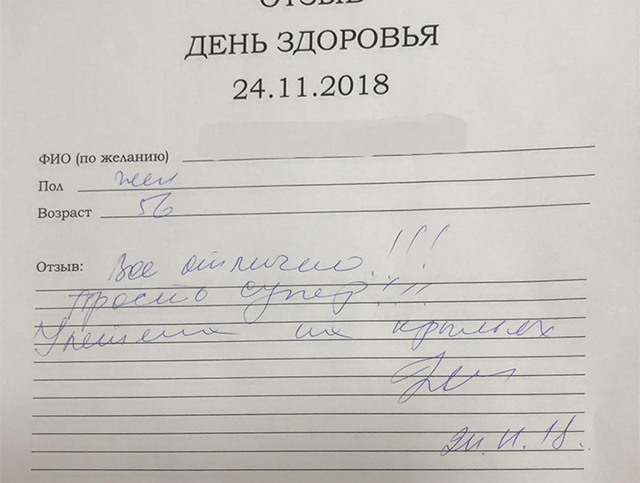 ОТЗЫВ
ДЕНЬ ЗДОРОВЬЯ
24.11.2018
ФИО (по желанию)
Пол жен
Возраст 56
Отзыв: Все отлично!!!
просто супер!!!
Улетела на крыльях
24.11.18.